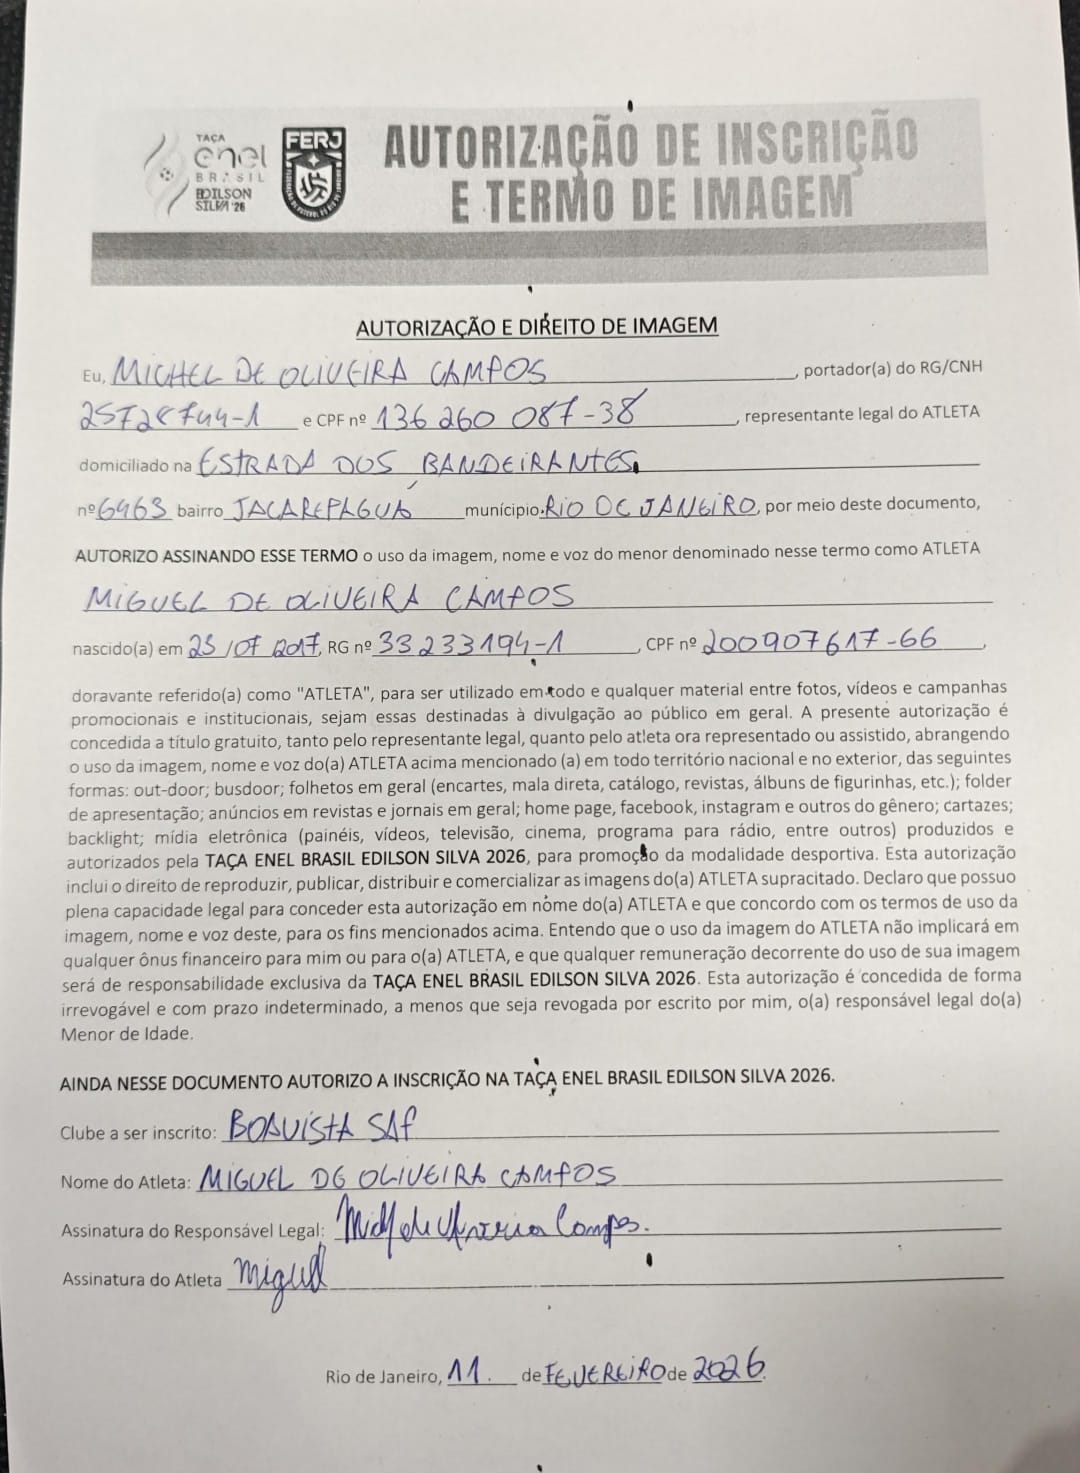 TAÇA
enel
BRASIL
EDILSON
SILVA '26
FERJ
AUTORIZAÇÃO DE INSCRIÇÃO
E TERMO DE IMAGEM
AUTORIZAÇÃO E DIREITO DE IMAGEM
Eu, MICHEL DE OLIVEIRA CAMPOS, portador(a) do RG/CNH
e CPF nº 136 260 087-38, representante legal do ATLETA
domiciliado na ESTRADA DOS BANDEIRANTES
nº 6463 bairro JACAREPAGUÁ município RIO DE JANEIRO, por meio deste documento,
AUTORIZO ASSINANDO ESSE TERMO o uso da imagem, nome e voz do menor denominado nesse termo como ATLETA
MIGUEL DE OLIVEIRA CAMPOS
nascido(a) em 23/07 2017, RG nº 33 233194-1, CPF nº 200907617-66,
doravante referido(a) como "ATLETA", para ser utilizado em todo e qualquer material entre fotos, vídeos e campanhas
promocionais e institucionais, sejam essas destinadas à divulgação ao público em geral. A presente autorização é
concedida a título gratuito, tanto pelo representante legal, quanto pelo atleta ora representado ou assistido, abrangendo
o uso da imagem, nome e voz do(a) ATLETA acima mencionado (a) em todo território nacional e no exterior, das seguintes
formas: out-door; busdoor; folhetos em geral (encartes, mala direta, catálogo, revistas, álbuns de figurinhas, etc.); folder
de apresentação; anúncios em revistas e jornais em geral; home page, facebook, instagram e outros do gênero; cartazes;
backlight; mídia eletrônica (painéis, vídeos, televisão, cinema, programa para rádio, entre outros) produzidos e
autorizados pela TAÇA ENEL BRASIL EDILSON SILVA 2026, para promoção da modalidade desportiva. Esta autorização
inclui o direito de reproduzir, publicar, distribuir e comercializar as imagens do(a) ATLETA supracitado. Declaro que possuo
plena capacidade legal para conceder esta autorização em nome do(a) ATLETA e que concordo com os termos de uso da
imagem, nome e voz deste, para os fins mencionados acima. Entendo que o uso da imagem do ATLETA não implicará em
qualquer ônus financeiro para mim ou para o(a) ATLETA, e que qualquer remuneração decorrente do uso de sua imagem
será de responsabilidade exclusiva da TAÇA ENEL BRASIL EDILSON SILVA 2026. Esta autorização é concedida de forma
irrevogável e com prazo indeterminado, a menos que seja revogada por escrito por mim, o(a) responsável legal do(a)
Menor de Idade.
AINDA NESSE DOCUMENTO AUTORIZO A INSCRIÇÃO NA TAÇA ENEL BRASIL EDILSON SILVA 2026.
Clube a ser inscrito: BOAVISTA SAF
Nome do Atleta: MIGUEL DE OLIVEIRA CAMPOS
Assinatura do Responsável Legal: Michel de Oliveira Campos.
Assinatura do Atleta Miguel
Rio de Janeiro, 11. de FEVEREIRO de 2026.